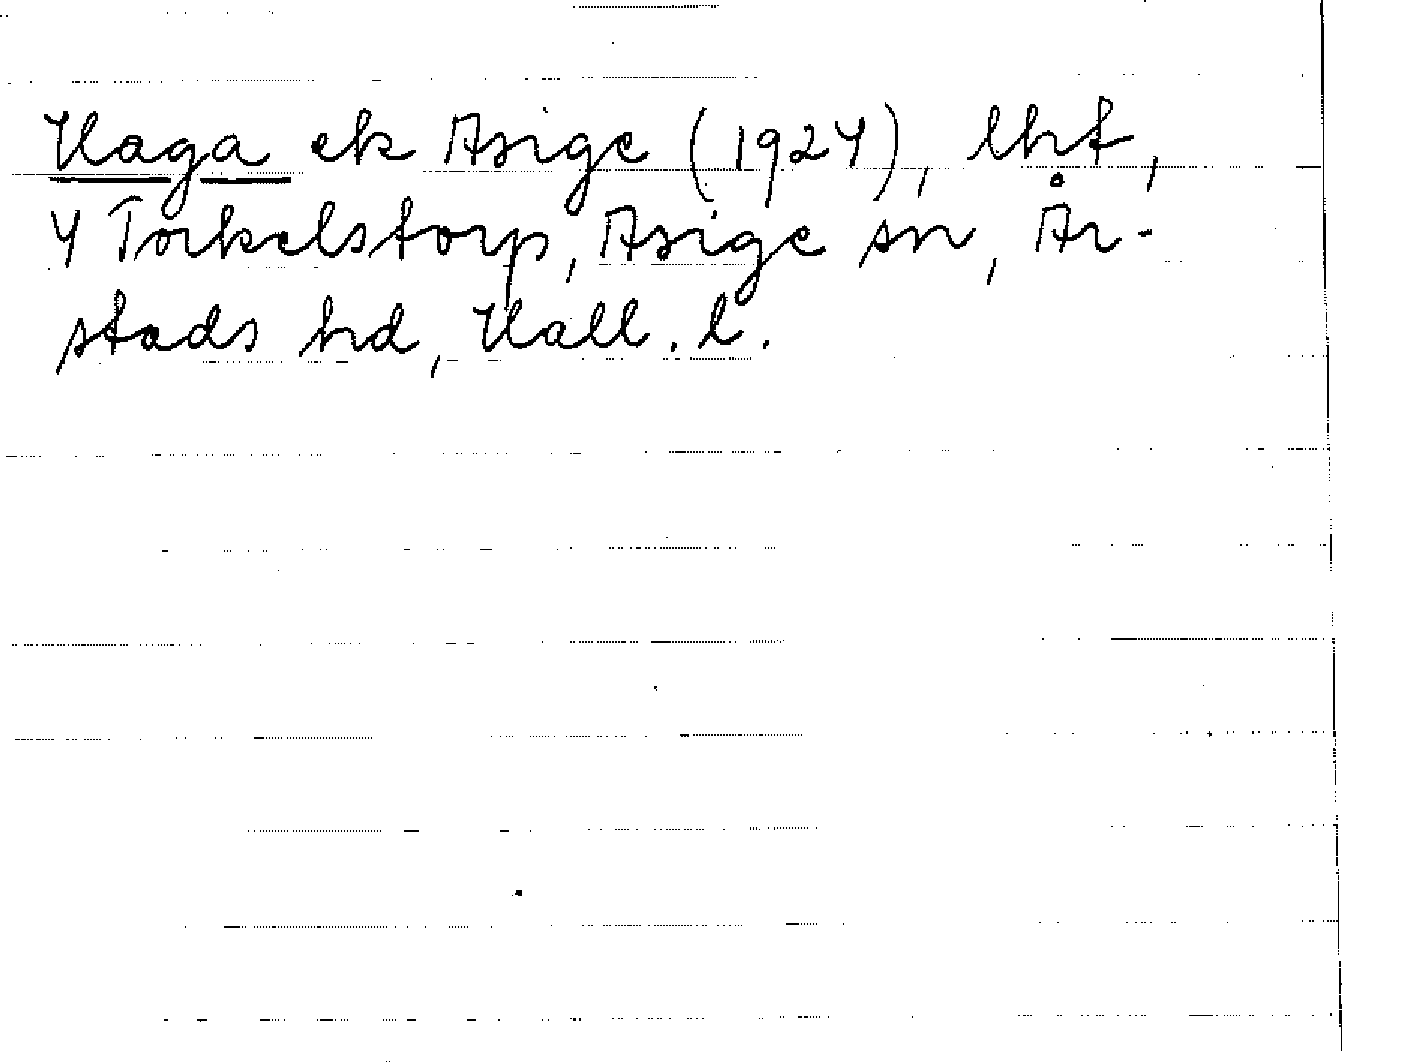 Haga ek Asige (1924), lht,
4 Torkelstorp, Asige sn, År-
stads hd, Hall. l.